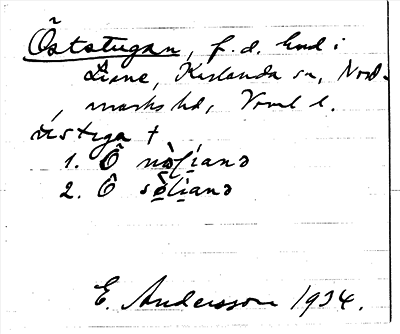 Öststugan, f. d. hmd i
Liane, Karlanda sn, Nord-
marks hd, Vrml l.
östega †
1. Ô nòliana
2. Ô sø̀liana
E. Andersson 1934.